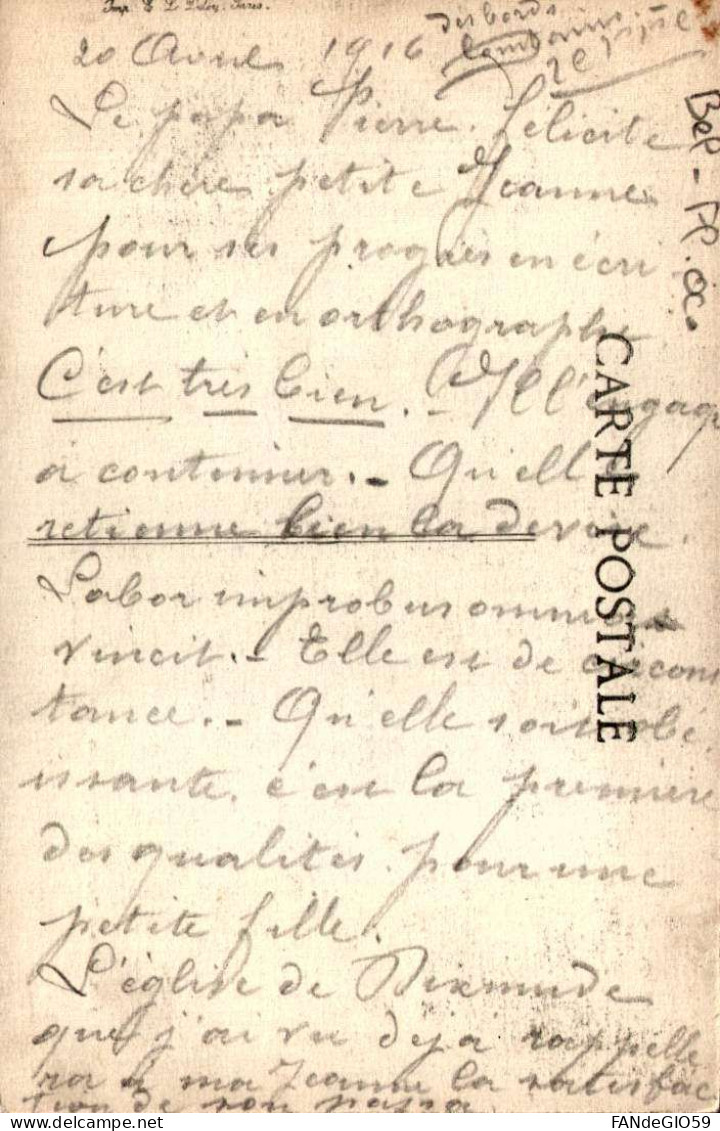 Imp. E. L. Deley, Paris.
des bords
20 Avril 1916
Le papa Pierre. Félicite
sa chère petite Jeanne
pour ses progrès en écri
ture et en orthographe
C'est très bien. - Il l'engage
à continuer. - Qu'elle
retienne bien la devise.
Labor improbus omnia
vincit. - Elle est de circons
tance. - Qu'elle soit obé
issante. c'est la première
des qualités pour une
petite fille.
L'église de Dixmude
que j'ai vu déjà rappelle
ra à ma Jeanne la satisfac
tion de son papa
CARTE POSTALE
Bel - PP.
FANdeGIO59